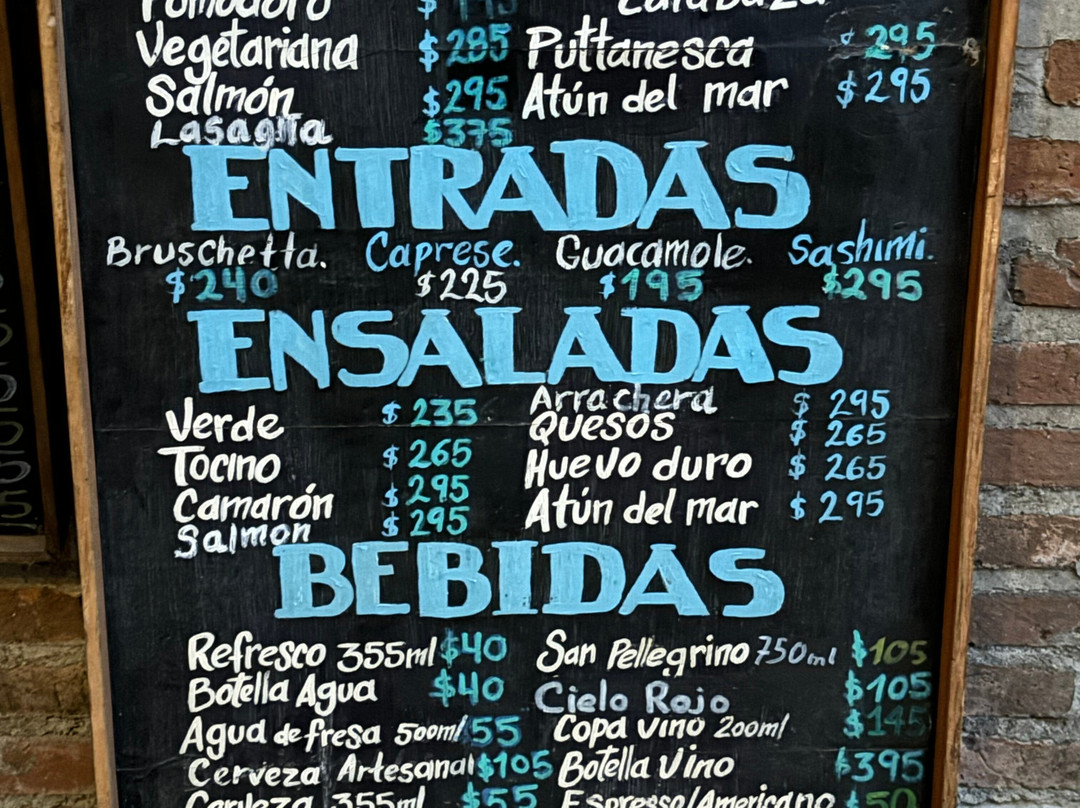 Pomodoro $ Calabaza
Vegetariana $285 Puttanesca $295
Salmón $295 Atún del mar $295
Lasagna $375
ENTRADAS
Bruschetta. Caprese. Guacamole. Sashimi.
$240 $225 $195 $295
ENSALADAS
Verde $235 Arrachera $295
Tocino $265 Quesos $265
Camarón $295 Huevo duro $265
Salmon $295 Atún del mar $295
BEBIDAS
Refresco 355ml $40 San Pellegrino 750ml $105
Botella Agua $40 Cielo Rojo $105
Agua de fresa 500ml 55 Copa vino 200ml $145
Cerveza Artesanal $105 Botella Vino $395
Cerveza 355ml $55 Espresso/Americano $50